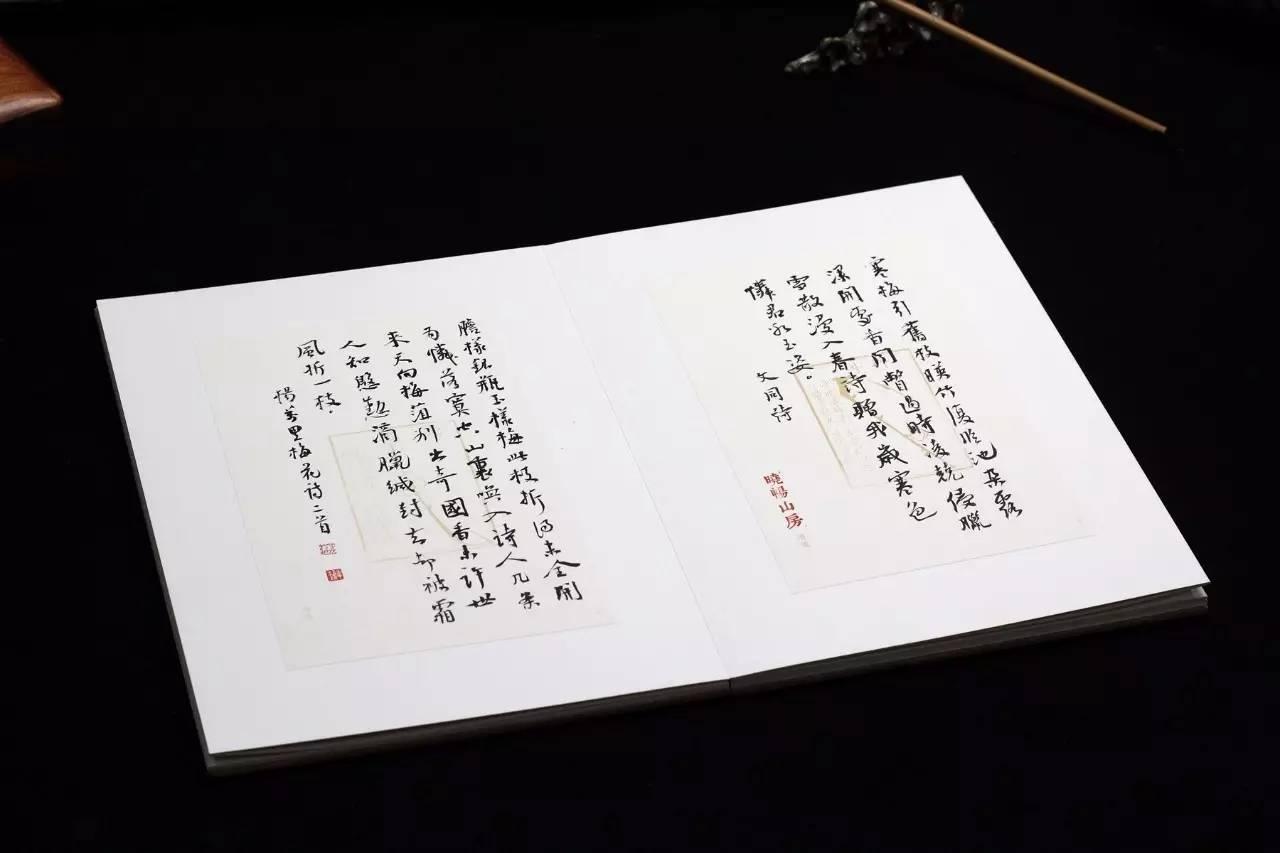 寒梅引舊枝暎竹復臨池朵露
深開處香聞暫過時凌兢侵臘
雪散漫入春詩贈我歲寒色
憐君冰玉姿。
文同詩
曉暢山房
膽樣銀瓶玉樣梅此枝折得未全開
為憐落寞空山裏喚入詩人几案
來天向梅梢別出奇國香未許世
人知慇懃滴臘緘封去却被霜
風折一枝。
楊萬里梅花詩二首